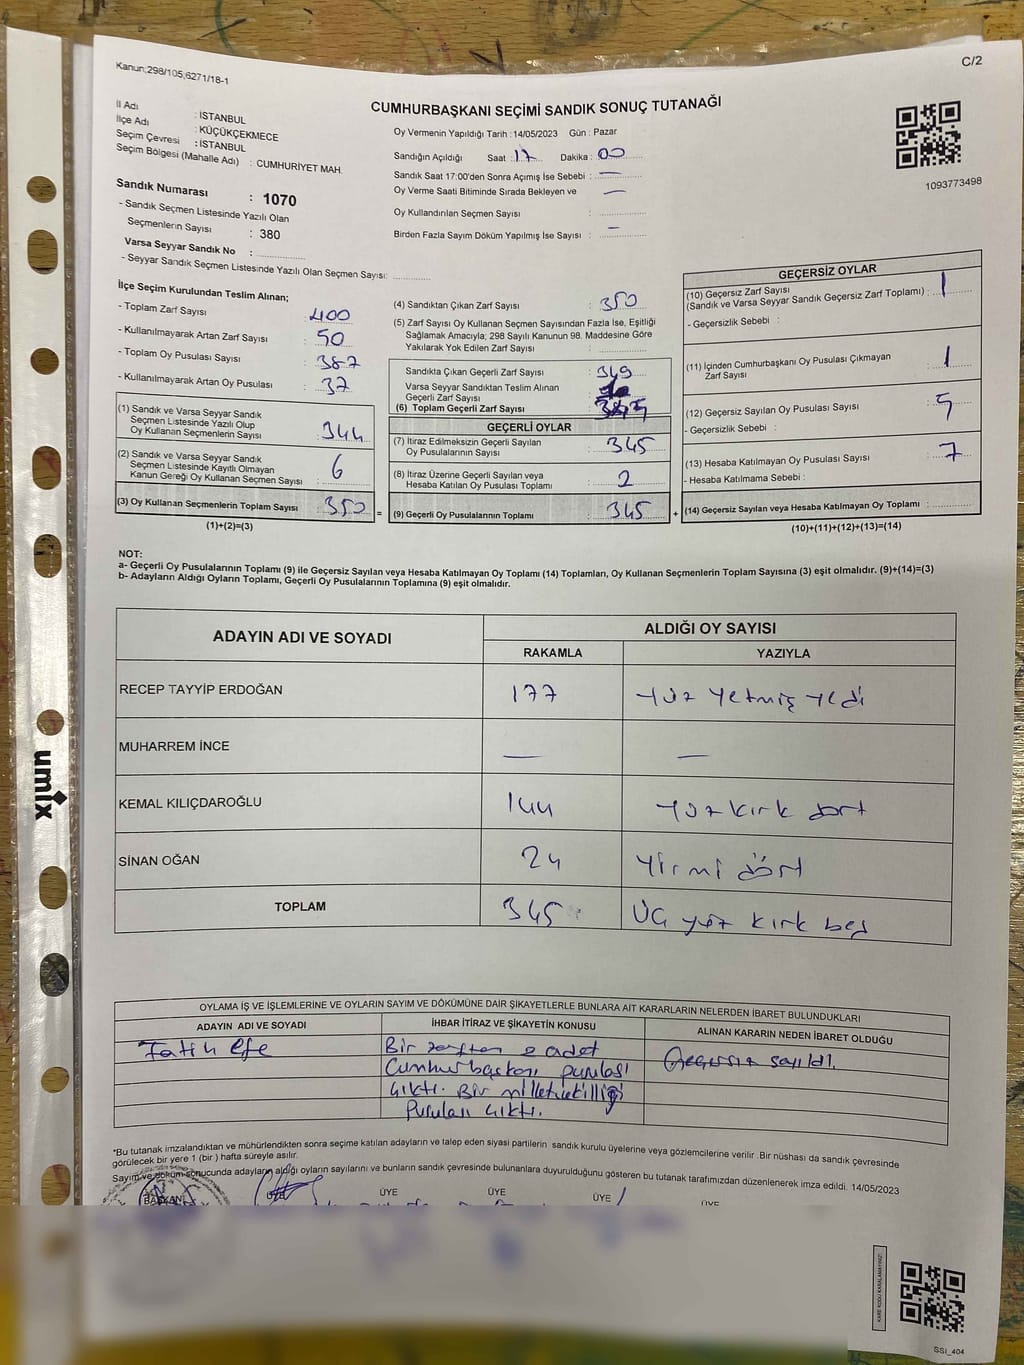 Kanun;298/105,6271/18-1
C/2
CUMHURBAŞKANI SEÇİMİ SANDIK SONUÇ TUTANAĞI
İl Adı : İSTANBUL
İlçe Adı : KÜÇÜKÇEKMECE
Seçim Çevresi : İSTANBUL
Seçim Bölgesi (Mahalle Adı) : CUMHURİYET MAH.
Sandık Numarası : 1070
- Sandık Seçmen Listesinde Yazılı Olan
Seçmenlerin Sayısı : 380
Varsa Seyyar Sandık No :
- Seyyar Sandık Seçmen Listesinde Yazılı Olan Seçmen Sayısı:
Oy Vermenin Yapıldığı Tarih : 14/05/2023 Gün : Pazar
Sandığın Açıldığı Saat : 17 Dakika : 00
Sandık Saat 17:00'den Sonra Açımış İse Sebebi : —
Oy Verme Saati Bitiminde Sırada Bekleyen ve —
Oy Kullandırılan Seçmen Sayısı :
Birden Fazla Sayım Döküm Yapılmış İse Sayısı : —
1093773498
İlçe Seçim Kurulundan Teslim Alınan;
- Toplam Zarf Sayısı : 400
- Kullanılmayarak Artan Zarf Sayısı : 50
- Toplam Oy Pusulası Sayısı : 387
- Kullanılmayarak Artan Oy Pusulası : 37
(1) Sandık ve Varsa Seyyar Sandık
Seçmen Listesinde Yazılı Olup
Oy Kullanan Seçmenlerin Sayısı : 344
(2) Sandık ve Varsa Seyyar Sandık
Seçmen Listesinde Kayıtlı Olmayan
Kanun Gereği Oy Kullanan Seçmen Sayısı : 6
(3) Oy Kullanan Seçmenlerin Toplam Sayısı : 350
(1)+(2)=(3)
(4) Sandıktan Çıkan Zarf Sayısı : 350
(5) Zarf Sayısı Oy Kullanan Seçmen Sayısından Fazla İse, Eşitliği
Sağlamak Amacıyla; 298 Sayılı Kanunun 98. Maddesine Göre
Yakılarak Yok Edilen Zarf Sayısı :
Sandıkta Çıkan Geçerli Zarf Sayısı : 349
Varsa Seyyar Sandıktan Teslim Alınan
Geçerli Zarf Sayısı :
(6) Toplam Geçerli Zarf Sayısı :
GEÇERLİ OYLAR
(7) İtiraz Edilmeksizin Geçerli Sayılan
Oy Pusulalarının Sayısı : 345
(8) İtiraz Üzerine Geçerli Sayılan veya
Hesaba Katılan Oy Pusulası Toplamı : 2
(9) Geçerli Oy Pusulalarının Toplamı : 345
=
+
GEÇERSİZ OYLAR
(10) Geçersiz Zarf Sayısı
(Sandık ve Varsa Seyyar Sandık Geçersiz Zarf Toplamı) : 1
- Geçersizlik Sebebi :
(11) İçinden Cumhurbaşkanı Oy Pusulası Çıkmayan
Zarf Sayısı : 1
(12) Geçersiz Sayılan Oy Pusulası Sayısı : 5
- Geçersizlik Sebebi :
(13) Hesaba Katılmayan Oy Pusulası Sayısı : 7
- Hesaba Katılmama Sebebi :
(14) Geçersiz Sayılan veya Hesaba Katılmayan Oy Toplamı :
(10)+(11)+(12)+(13)=(14)
NOT:
a- Geçerli Oy Pusulalarının Toplamı (9) ile Geçersiz Sayılan veya Hesaba Katılmayan Oy Toplamı (14) Toplamları, Oy Kullanan Seçmenlerin Toplam Sayısına (3) eşit olmalıdır. (9)+(14)=(3)
b- Adayların Aldığı Oyların Toplamı, Geçerli Oy Pusulalarının Toplamına (9) eşit olmalıdır.
ADAYIN ADI VE SOYADI ALDIĞI OY SAYISI
RAKAMLA YAZIYLA
RECEP TAYYİP ERDOĞAN 177 Yüz Yetmiş Yedi
MUHARREM İNCE — —
KEMAL KILIÇDAROĞLU 144 Yüz kırk dört
SİNAN OĞAN 24 Yirmi dört
TOPLAM 345 Üç yüz kırk beş
OYLAMA İŞ VE İŞLEMLERİNE VE OYLARIN SAYIM VE DÖKÜMÜNE DAİR ŞİKAYETLERLE BUNLARA AİT KARARLARIN NELERDEN İBARET BULUNDUKLARI
ADAYIN ADI VE SOYADI İHBAR İTİRAZ VE ŞİKAYETİN KONUSU ALINAN KARARIN NEDEN İBARET OLDUĞU
Fatih Efe Bir zarftan 2 adet Geçersiz sayıldı.
Cumhurbaşkanı pusulası
çıktı. Bir milletvekilliği
Pusulası çıktı.
*Bu tutanak imzalandıktan ve mühürlendikten sonra seçime katılan adayların ve talep eden siyasi partilerin sandık kurulu üyelerine veya gözlemcilerine verilir .Bir nüshası da sandık çevresinde
görülecek bir yere 1 (bir ) hafta süreyle asılır.
Sayım ve döküm sonucunda adayların aldığı oyların sayılarını ve bunların sandık çevresinde bulunanlara duyurulduğunu gösteren bu tutanak tarafımızdan düzenlenerek imza edildi. 14/05/2023
BAŞKAN ÜYE ÜYE ÜYE ÜYE ÜYE
umix
SSI_404